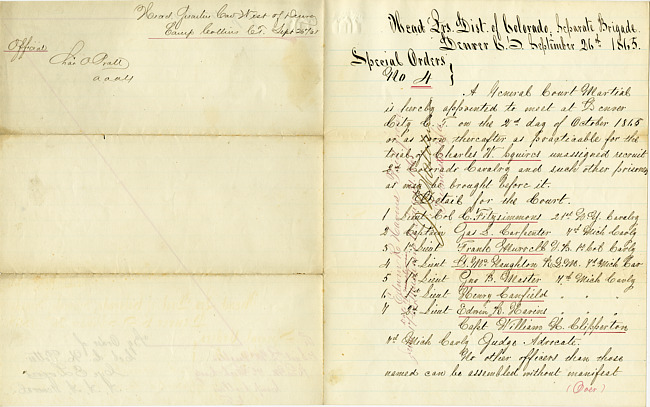 Head Quarters Cav West of
Camp Collins C.T. Sept 26th/65
Official
Chas O. Pratt
a a a G
Head Qrs. Dist. of Colorado, Separate Brigade.
Denver C.T. September 26th 1865.
Special Orders
No 4
A General Court Martial
is hereby appointed to meet at Denver
City C.T. on the 2d day of October 1865
or as soon thereafter as practicable for the
trial of Charles W. Squires unassigned recruit
2d Colorado Cavalry and such other prisoners
as may be brought before it.
Detail for the Court.
1 Lieut Col C. Fitzsimmons 21st N.Y. Cavalry
2 Captain Jas S. Carpenter 4th Mich Cavly
3 1st Lieut Frank Murrell V.B. 1st Col Cavly
4 1st Lieut Naughton R.Q.M. 1st Mich Cav.
5 1st Lieut Geo B. Master 4th Mich Cavly
6 1st Lieut Henry Canfield " " "
7 2d Lieut Edwin R. Havens " " "
Capt William H. Clipperton
4th Mich Cavly Judge Advocate.
No other officers than those
named can be assembled without manifest
(Over)